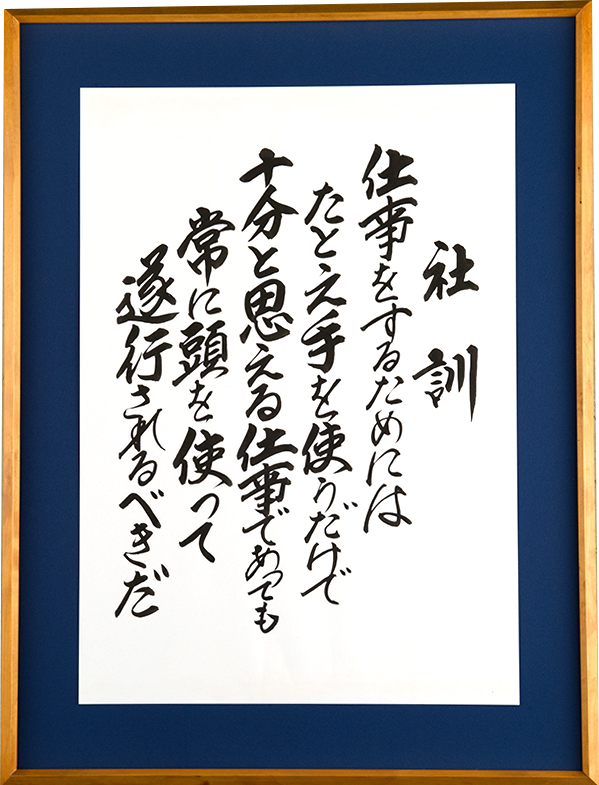 社訓
仕事をするためには
たとえ手を使うだけで
十分と思える仕事であっても
常に頭を使って
遂行されるべきだ